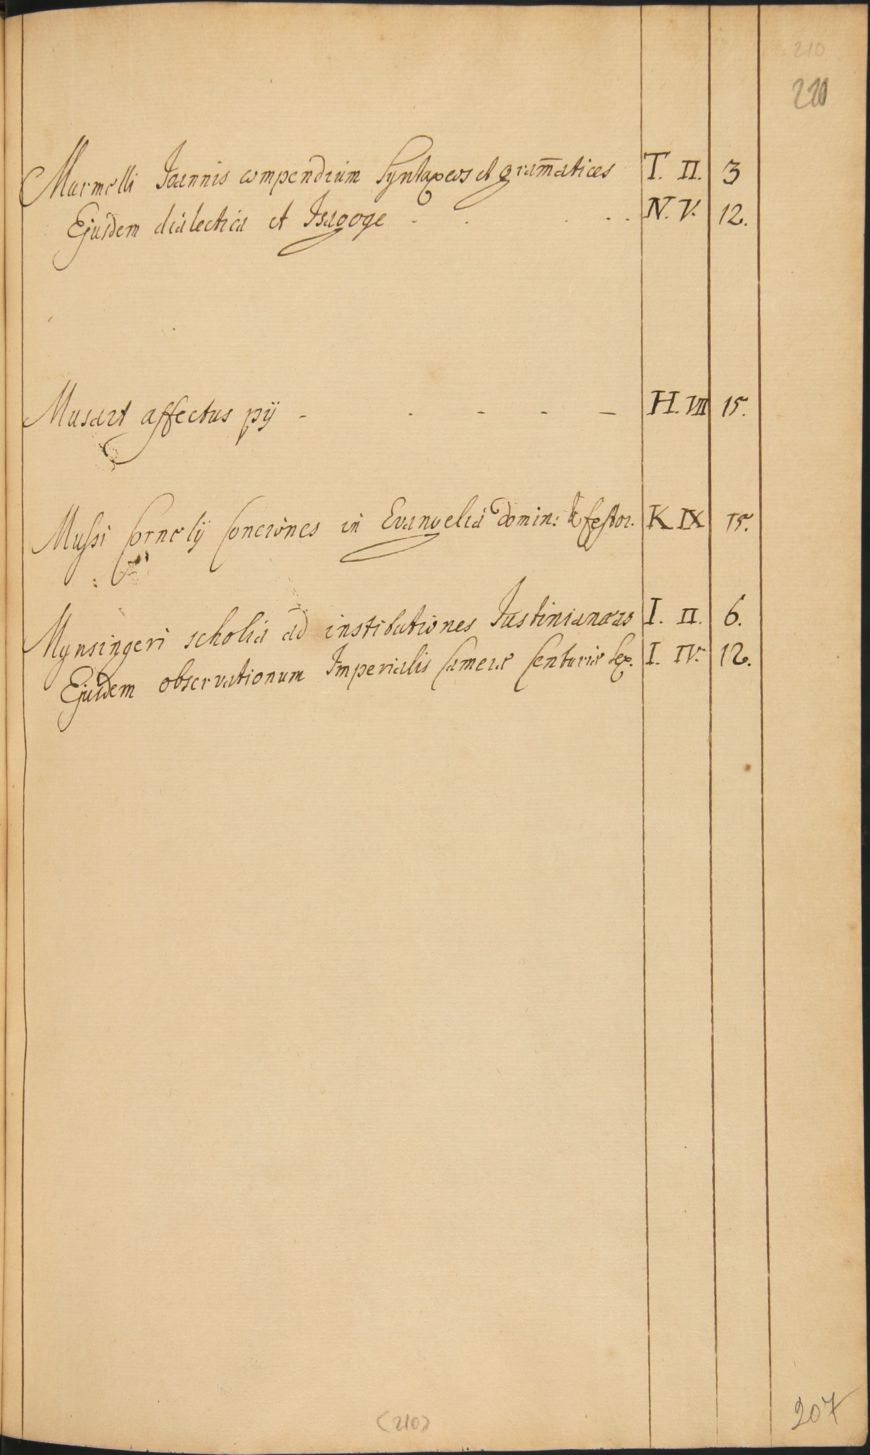 210
210
Murmelli Joannis compendium Syntaxeos et gram̅atices T. II. 3
Ejusdem dialectica et Isagoge - - - - - N. V. 12.
Musart affectus pij - - - - - H. VII 15.
Mussi Cornelij Conciones in Evangelia Domin: & festor. K IX 15.
Mynsingeri scholia ad institutiones Justinianaeas I. II. 6.
Ejusdem observationum Imperialis Camerae Centuriae Sex. I. IV. 12.
(210)
207